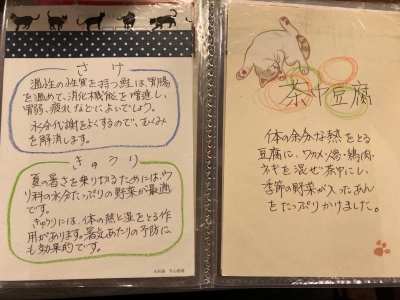 さけ
温性の性質を持つ鮭は、胃腸
を温めて、消化機能を増進し、
胃弱、疲れなどによいでしょう。
水分代謝をよくするので、むくみ
を解消します。
きゅうり
夏の暑さを乗り切るためには、ウ
リ科の水分たっぷりの野菜が最適
です。
きゅうりには、体の熱と湿をとる作
用があります。暑気あたりの予防に
も効果的です。
茶巾豆腐
体の余分な熱をとる
豆腐に、ワカメ・卵・鶏肉・
ネギを混ぜ茶巾にし、
季節の野菜が入ったあん
をたっぷりかけました。